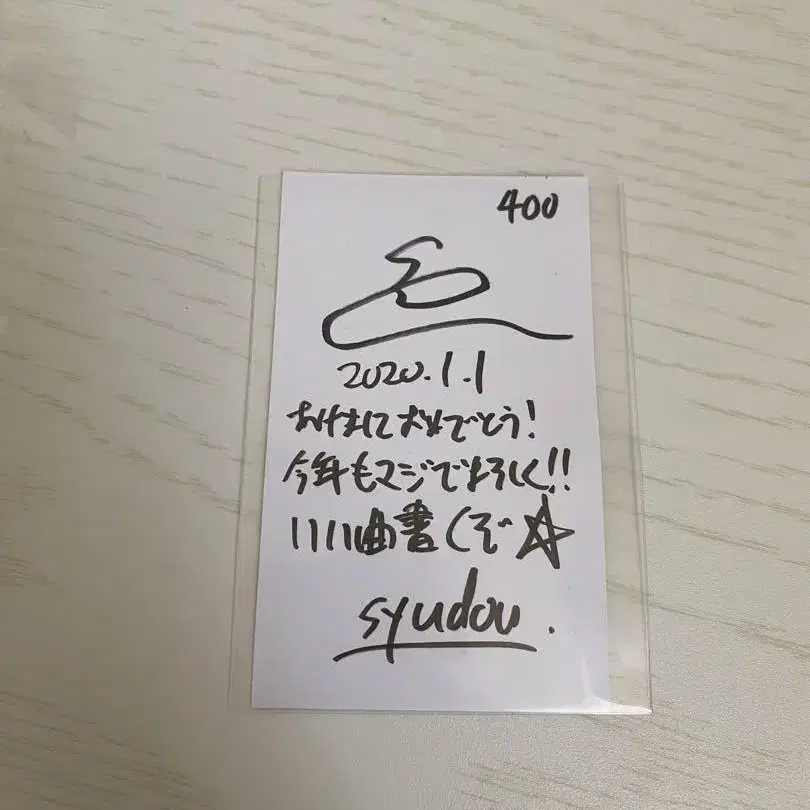 400
2020.1.1
あけましておめでとう!
今年もマジでよろしく!!
いい曲書くぞ☆
syudou.